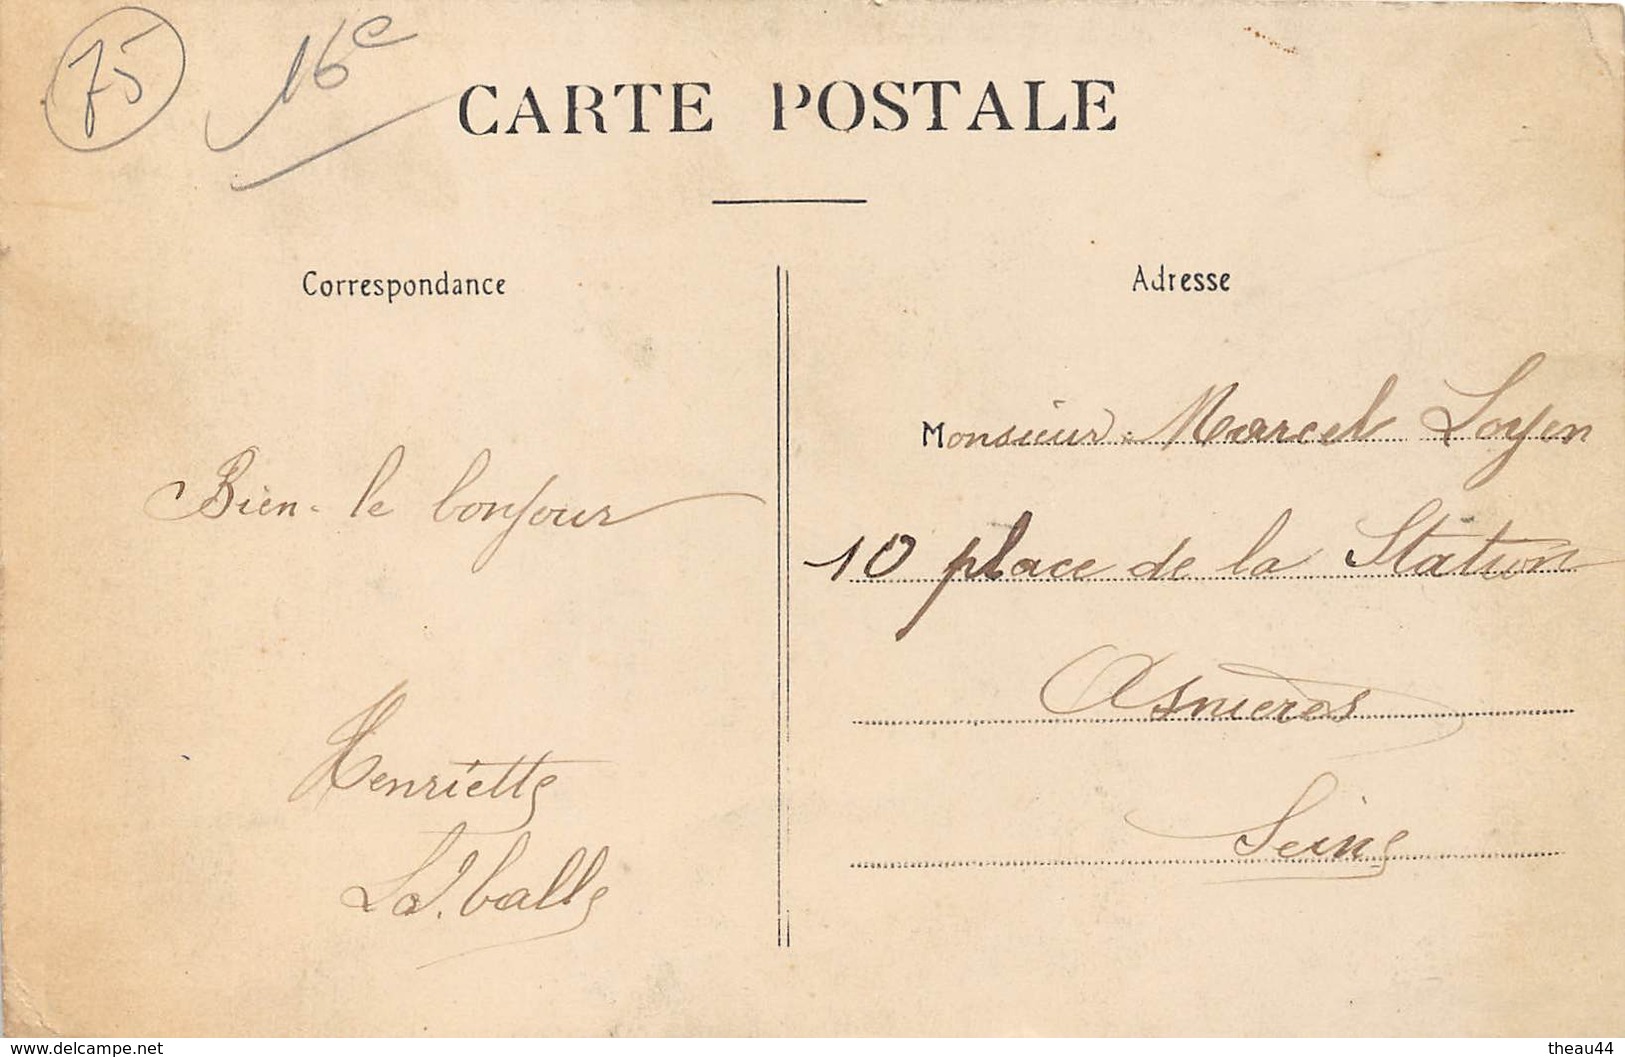 75
16e
CARTE POSTALE
Correspondance
Adresse
Bien le bonjour
Henriette
Monsieur Marcel Loyen
10 place de la Station
Asnières
Seine
www.delcampe.net
theau44